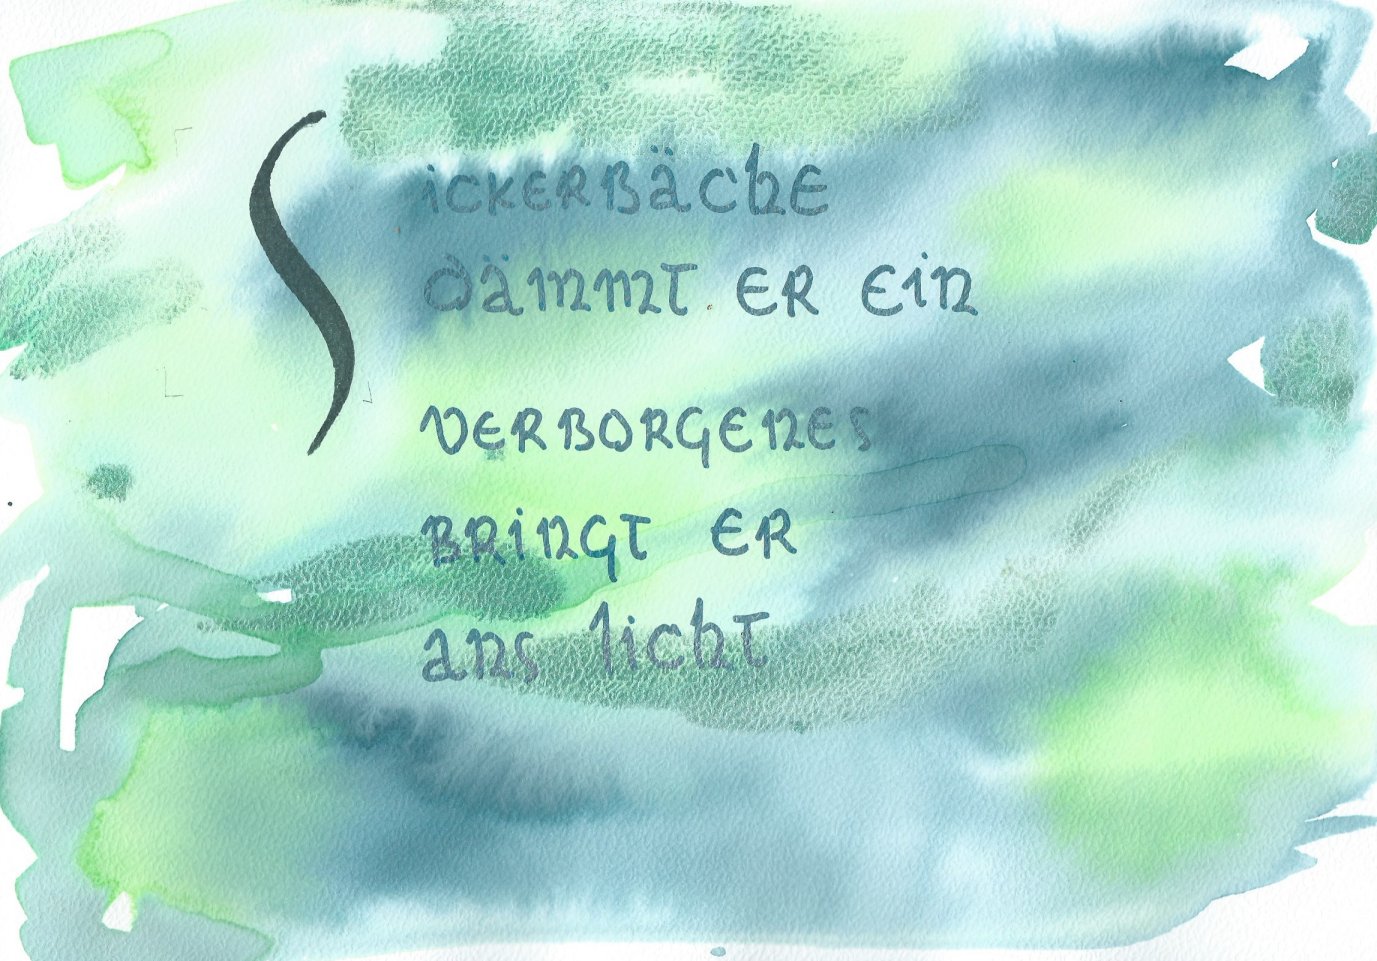 SickerBäche
dämmt er ein
verborgenes
Bringt er
ans licht